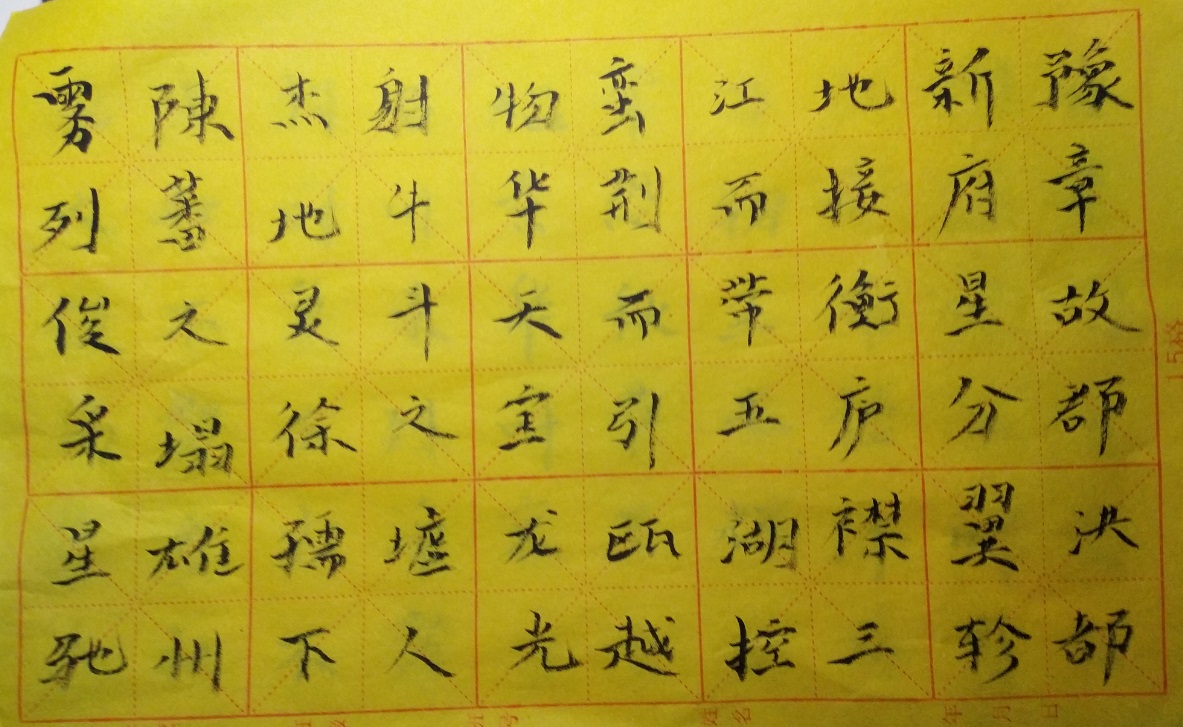 豫章故郡洪都
新府星分翼轸
地接衡庐襟三
江而带五湖控
蛮荆而引瓯越
物华天宝龙光
射牛斗之墟人
杰地灵徐孺下
陳蕃之塌雄州
雾列俊采星驰
年 月 日
姓名